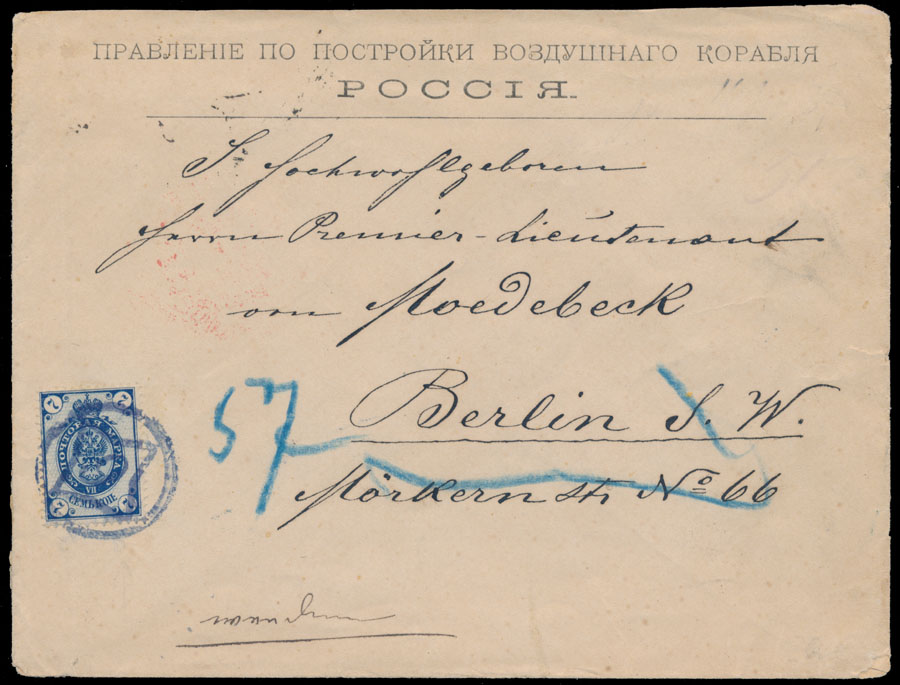 ПРАВЛЕНІЕ ПО ПОСТРОЙКИ ВОЗДУШНАГО КОРАБЛЯ
РОССІЯ.
S. Hochwohlgeboren
Herrn Premier-Lieutenant
von Moedebeck
Berlin S. W.
Mörkern str No 66
57
7 7
ПОЧТОВАЯ МАРКА
VII
СЕМЬ КОП.
7 7